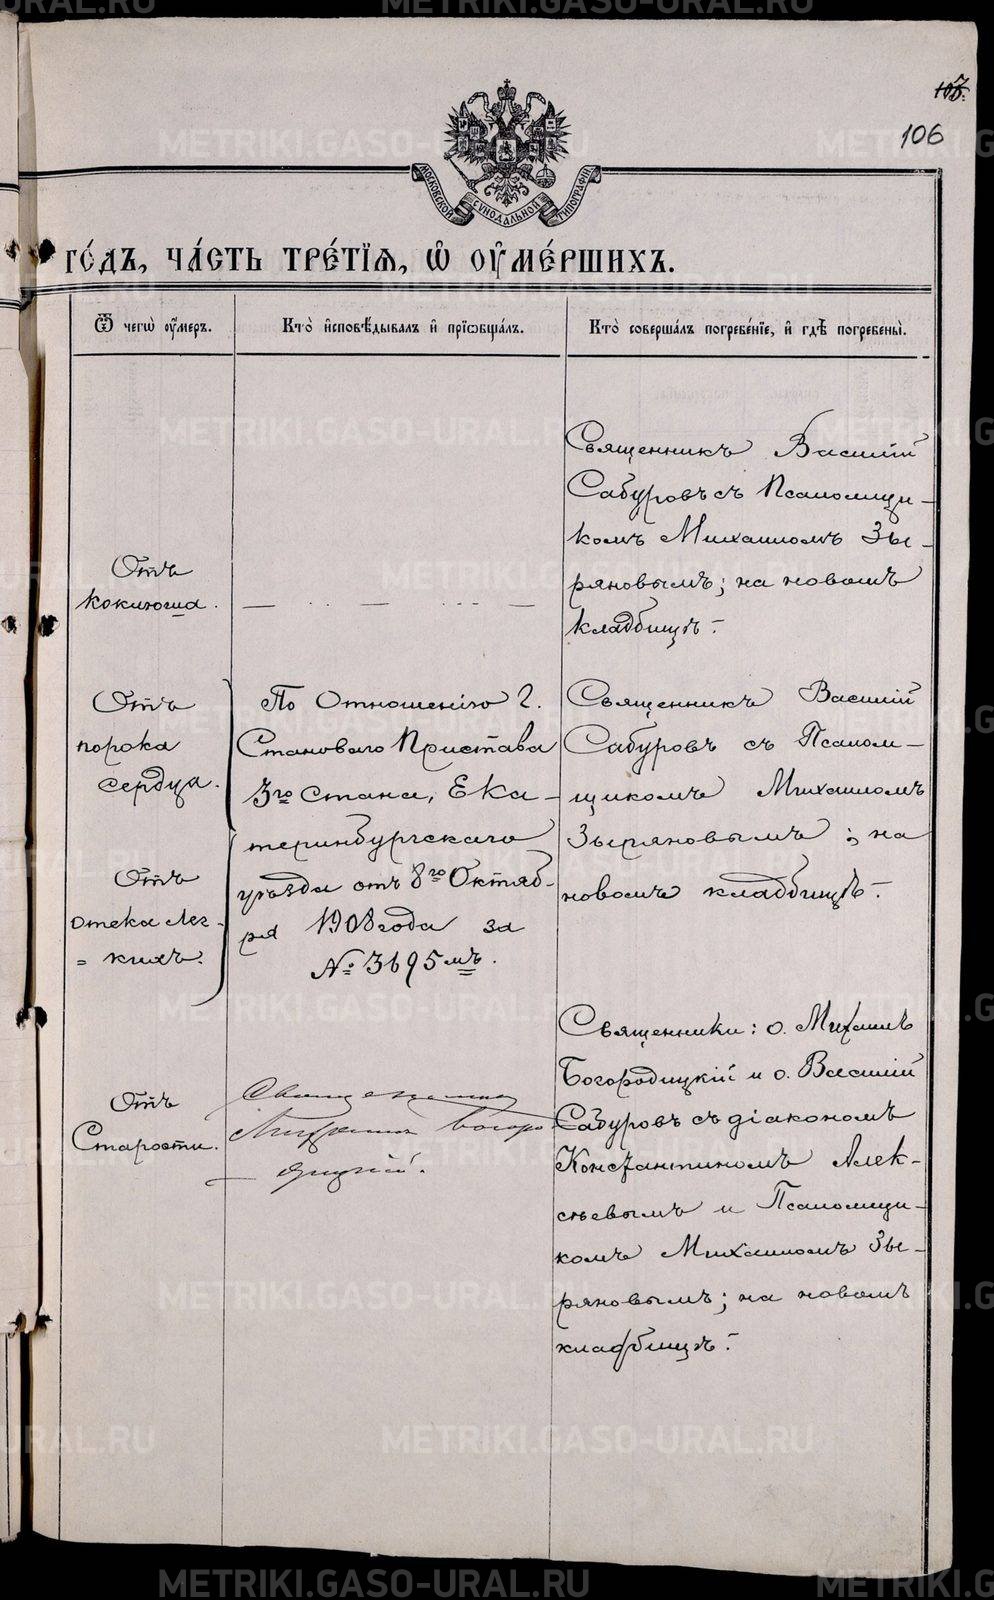 107.
106
МОСКОВСКОЙ СѴНОДАЛЬНОЙ ТИПОГРАФІИ
го́дъ, ча́сть тре́тїѧ, ѡ҆ оу҆ме́ршихъ.
Ѿ чегѡ̀ оу҆́меръ.
Кто̀ и҆сповѣ́дывалъ и҆ прїѡбща́лъ.
Кто̀ соверша́лъ погребе́нїе, и҆ гдѣ̀ погребены̀.
Отъ
коклюша.
— .. — ... —
Священникъ Василій
Сабуровъ съ Псаломщи-
комъ Михаиломъ Зы-
ряновымъ; на новомъ
кладбищѣ.-
Отъ
порока
сердца.
Отъ
отека лег-
=кихъ.
По Отношенію г.
Становаго Пристава
3го Стана, Ека-
теринбургскаго
уѣзда отъ 8го Октяб-
ря 1908 года за
№ 3695мъ.
Священникъ Василій
Сабуровъ съ Псалом-
щикомъ Михаиломъ
Зыряновымъ; на
новомъ кладбищѣ.-
Отъ
Старости.
Священникъ
Михаилъ Богоро-
дицкій.
Священники: о. Михаилъ
Богородицкій и о. Василій
Сабуровъ съ діакономъ
Константиномъ Алек-
сѣевымъ и Псаломщи-
комъ Михаиломъ Зы-
ряновымъ; на новомъ
кладбищѣ.-
METRIKI.GASO-URAL.RU